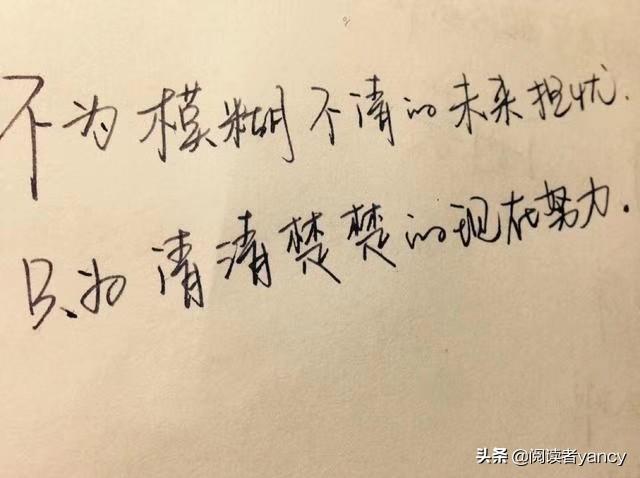 不为模糊不清的未来担忧.
只为清清楚楚的现在努力.
头条 @阅读者yancy